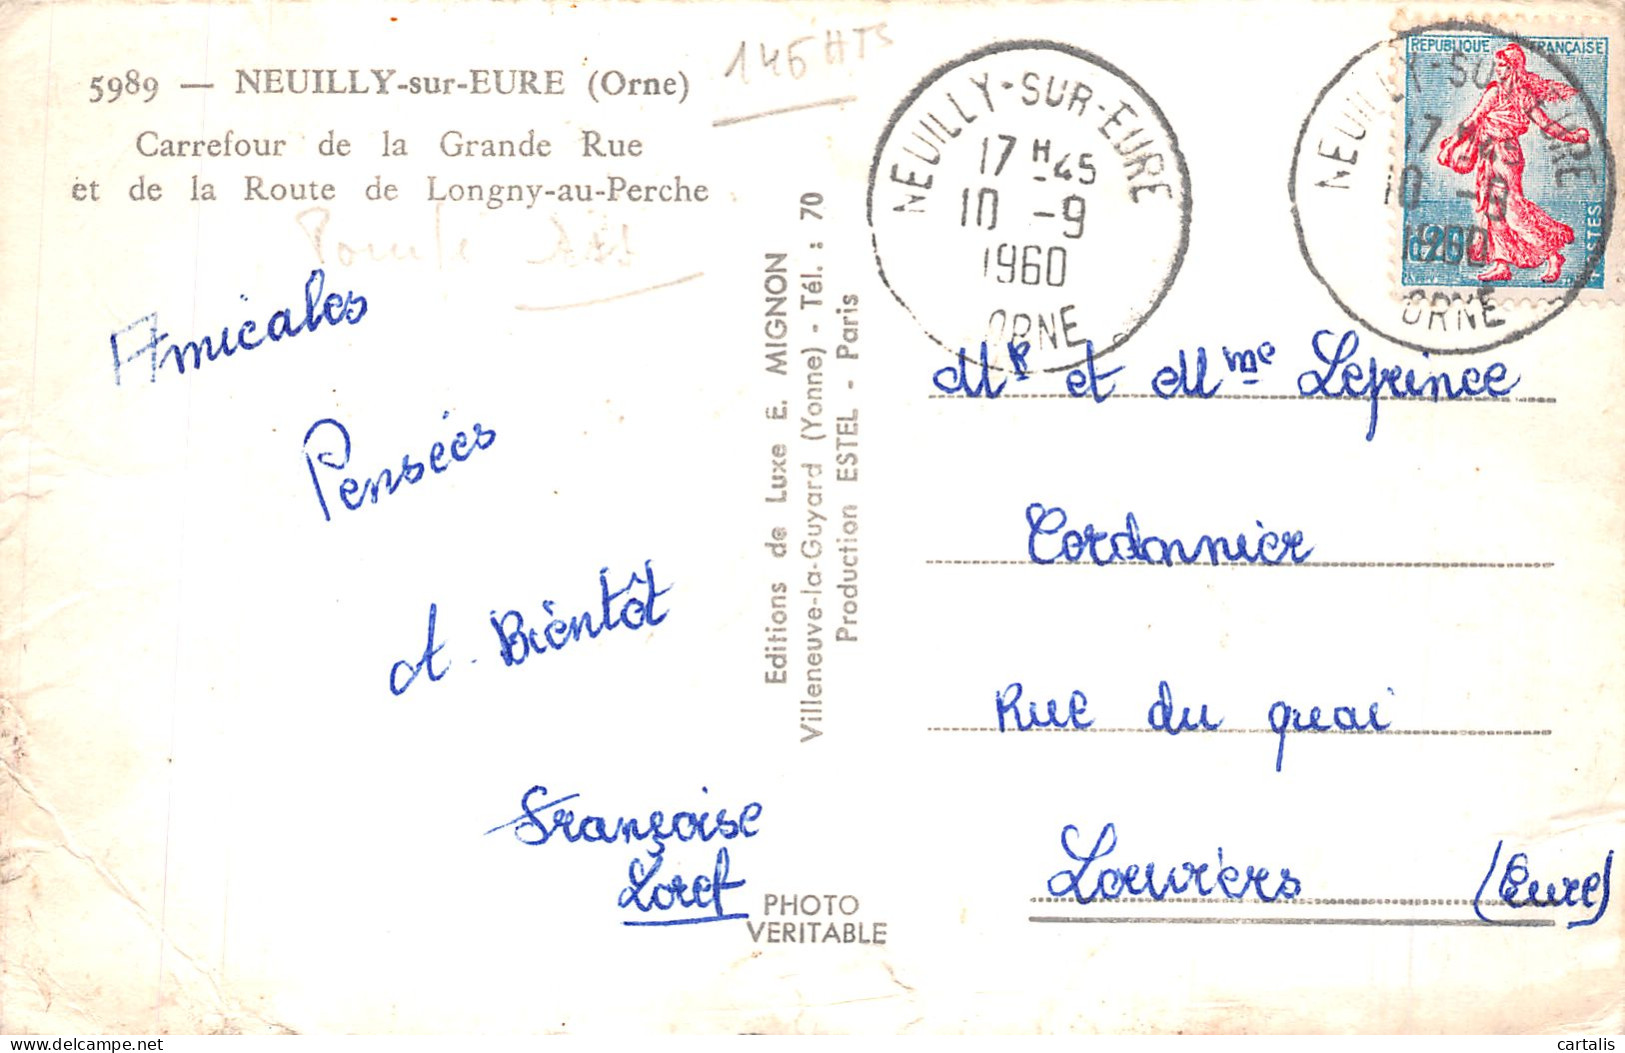 5989 — NEUILLY-sur-EURE (Orne)
Carrefour de la Grande Rue
et de la Route de Longny-au-Perche
Amicales
Pensées
A Bientôt
Françoise
Loref
Editions de Luxe E. MIGNON
Villeneuve-la-Guyard (Yonne) - Tél. : 70
Production ESTEL - Paris
PHOTO
VERITABLE
NEUILLY-SUR-EURE
17 H 45
10 -9
1960
ORNE
REPUBLIQUE FRANÇAISE
0,20
POSTES
NEUILLY-SUR-EURE
17 H 45
10 -9
1960
ORNE
Mr et Mme Leprince
Cordonnier
Rue du quai
Louviers (Eure)
cartalis